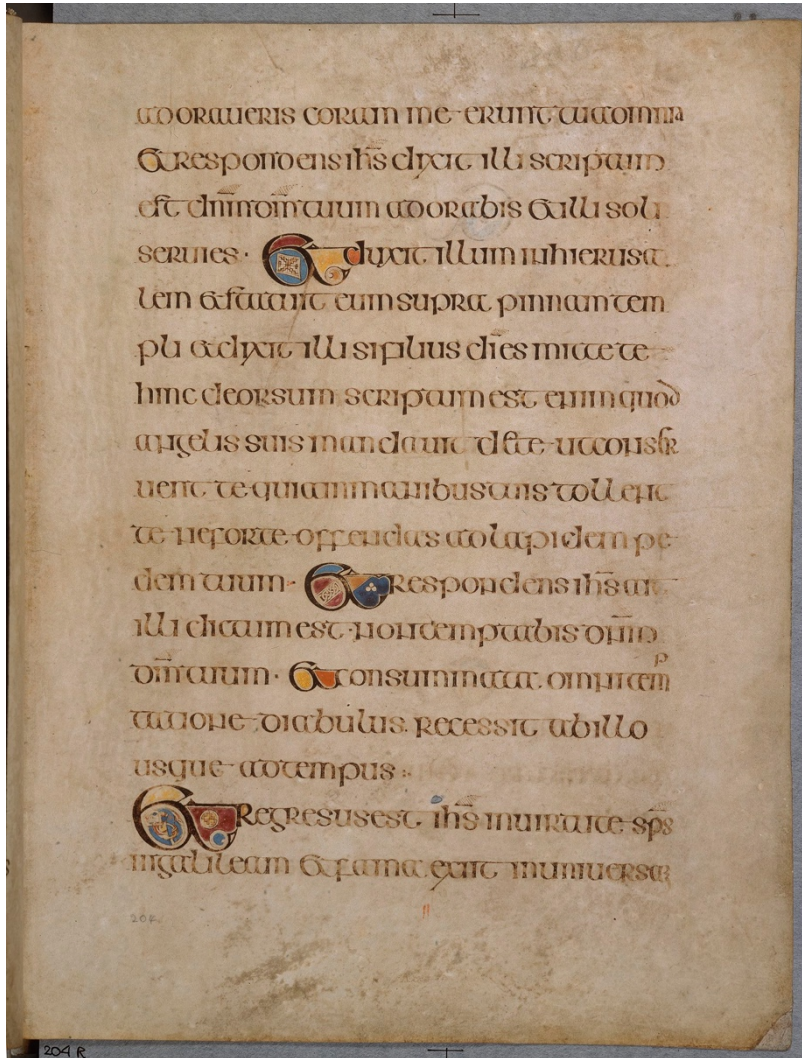 adoraueris coram me erunt tua omnia
Et respondens ihs dixit illi scriptum
est dnm dm tuum adorabis et illi soli
seruies · Et duxit illum in hierusa
lem et statuit eum supra pinnam tem
pli et dixit illi si filius di es mitte te
hinc deorsum scriptum est enim quod
angelis suis mandauit de te ut conser
uent te quia in manibus suis tollent
te ne forte offendas ad lapidem pe
dem tuum · Et respondens ihs ait
illi dictum est non temptabis dnm
dm tuum · Et consummata omni temp
tatione diabulus recessit ab illo
usque ad tempus :
Et regresus est ihs in uirtute sps
in galileam et fama exiit in uniuersa
204
204 R